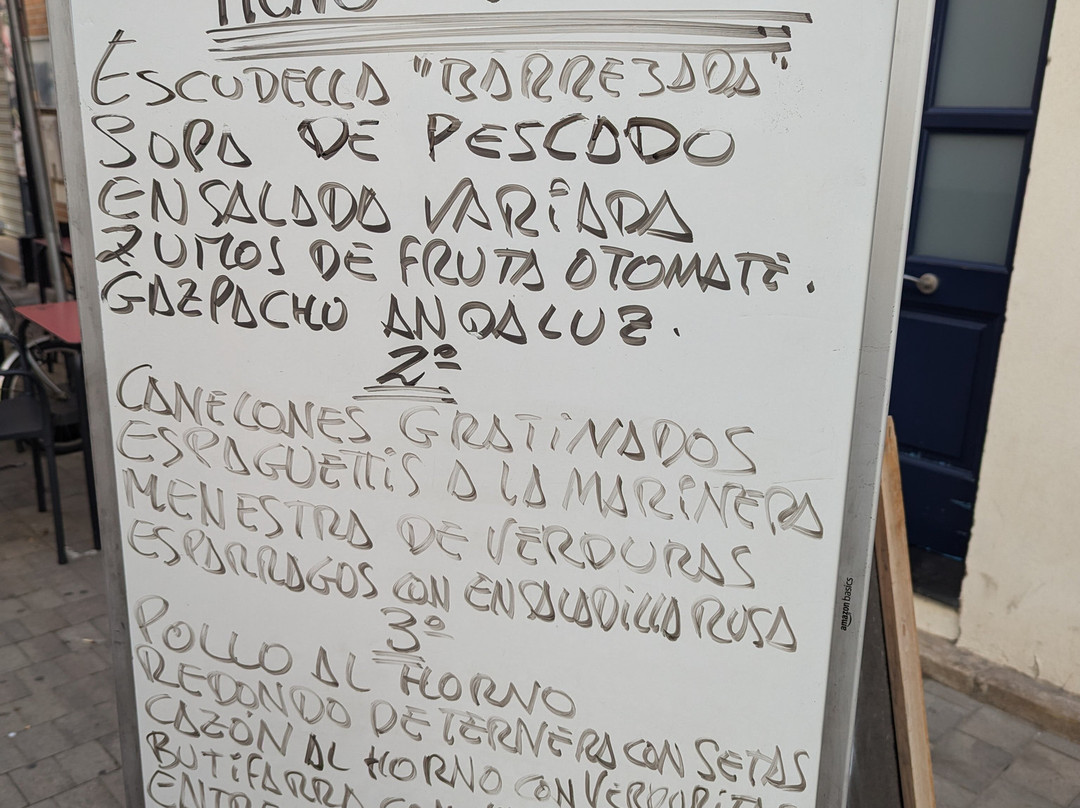 MENÚ
ESCUDELLA "BARREJADA"
SOPA DE PESCADO
ENSALADA VARIADA
ZUMOS DE FRUTA O TOMATE.
GAZPACHO ANDALUZ.
2º
CANELONES GRATINADOS
ESPAGUETTIS A LA MARINERA
MENESTRA DE VERDURAS
ESPARRAGOS CON ENSALADILLA RUSA
3º
POLLO AL HORNO
REDONDO DE TERNERA CON SETAS
CAZÓN AL HORNO CON VERDURITAS
BUTIFARRA CON
amazon basics